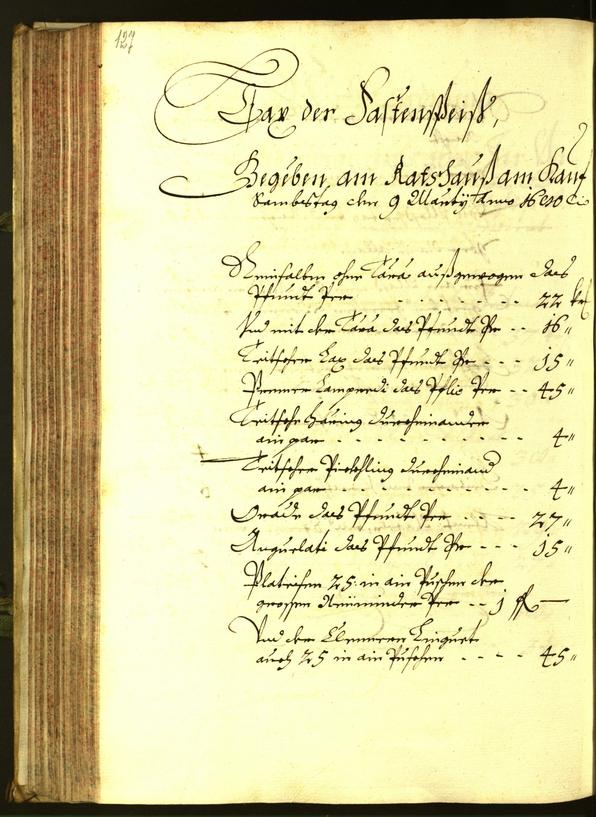 127
Tax der Fastenspeiß,
Gegeben am Ratshauß am Kauf
Sambstag den 9 Marty Anno 1640
Reinfalten ohne Tara außgewogen das
Pfundt Per - - - - - 22 kr
Und mit der Tara das Pfundt Per - - 16 "
Teitscher Lax das Pfundt Per - - - 15 "
das Per - - 45 "
Teitsche Häring durcheinander
ain par - - - - - - - - - 4 "
Teitschen Pickhling durcheinand
ain par - - - - - - - - 4 "
Orade das Pfundt Per - - - 27 "
Anguelati das Pfundt Per - - - 15 "
Plateisen 25 in ain Puschen der
grossen Per - - 1 fl —
Und der Clenneren
auch 25 in ain Puschen - - - - 45 "